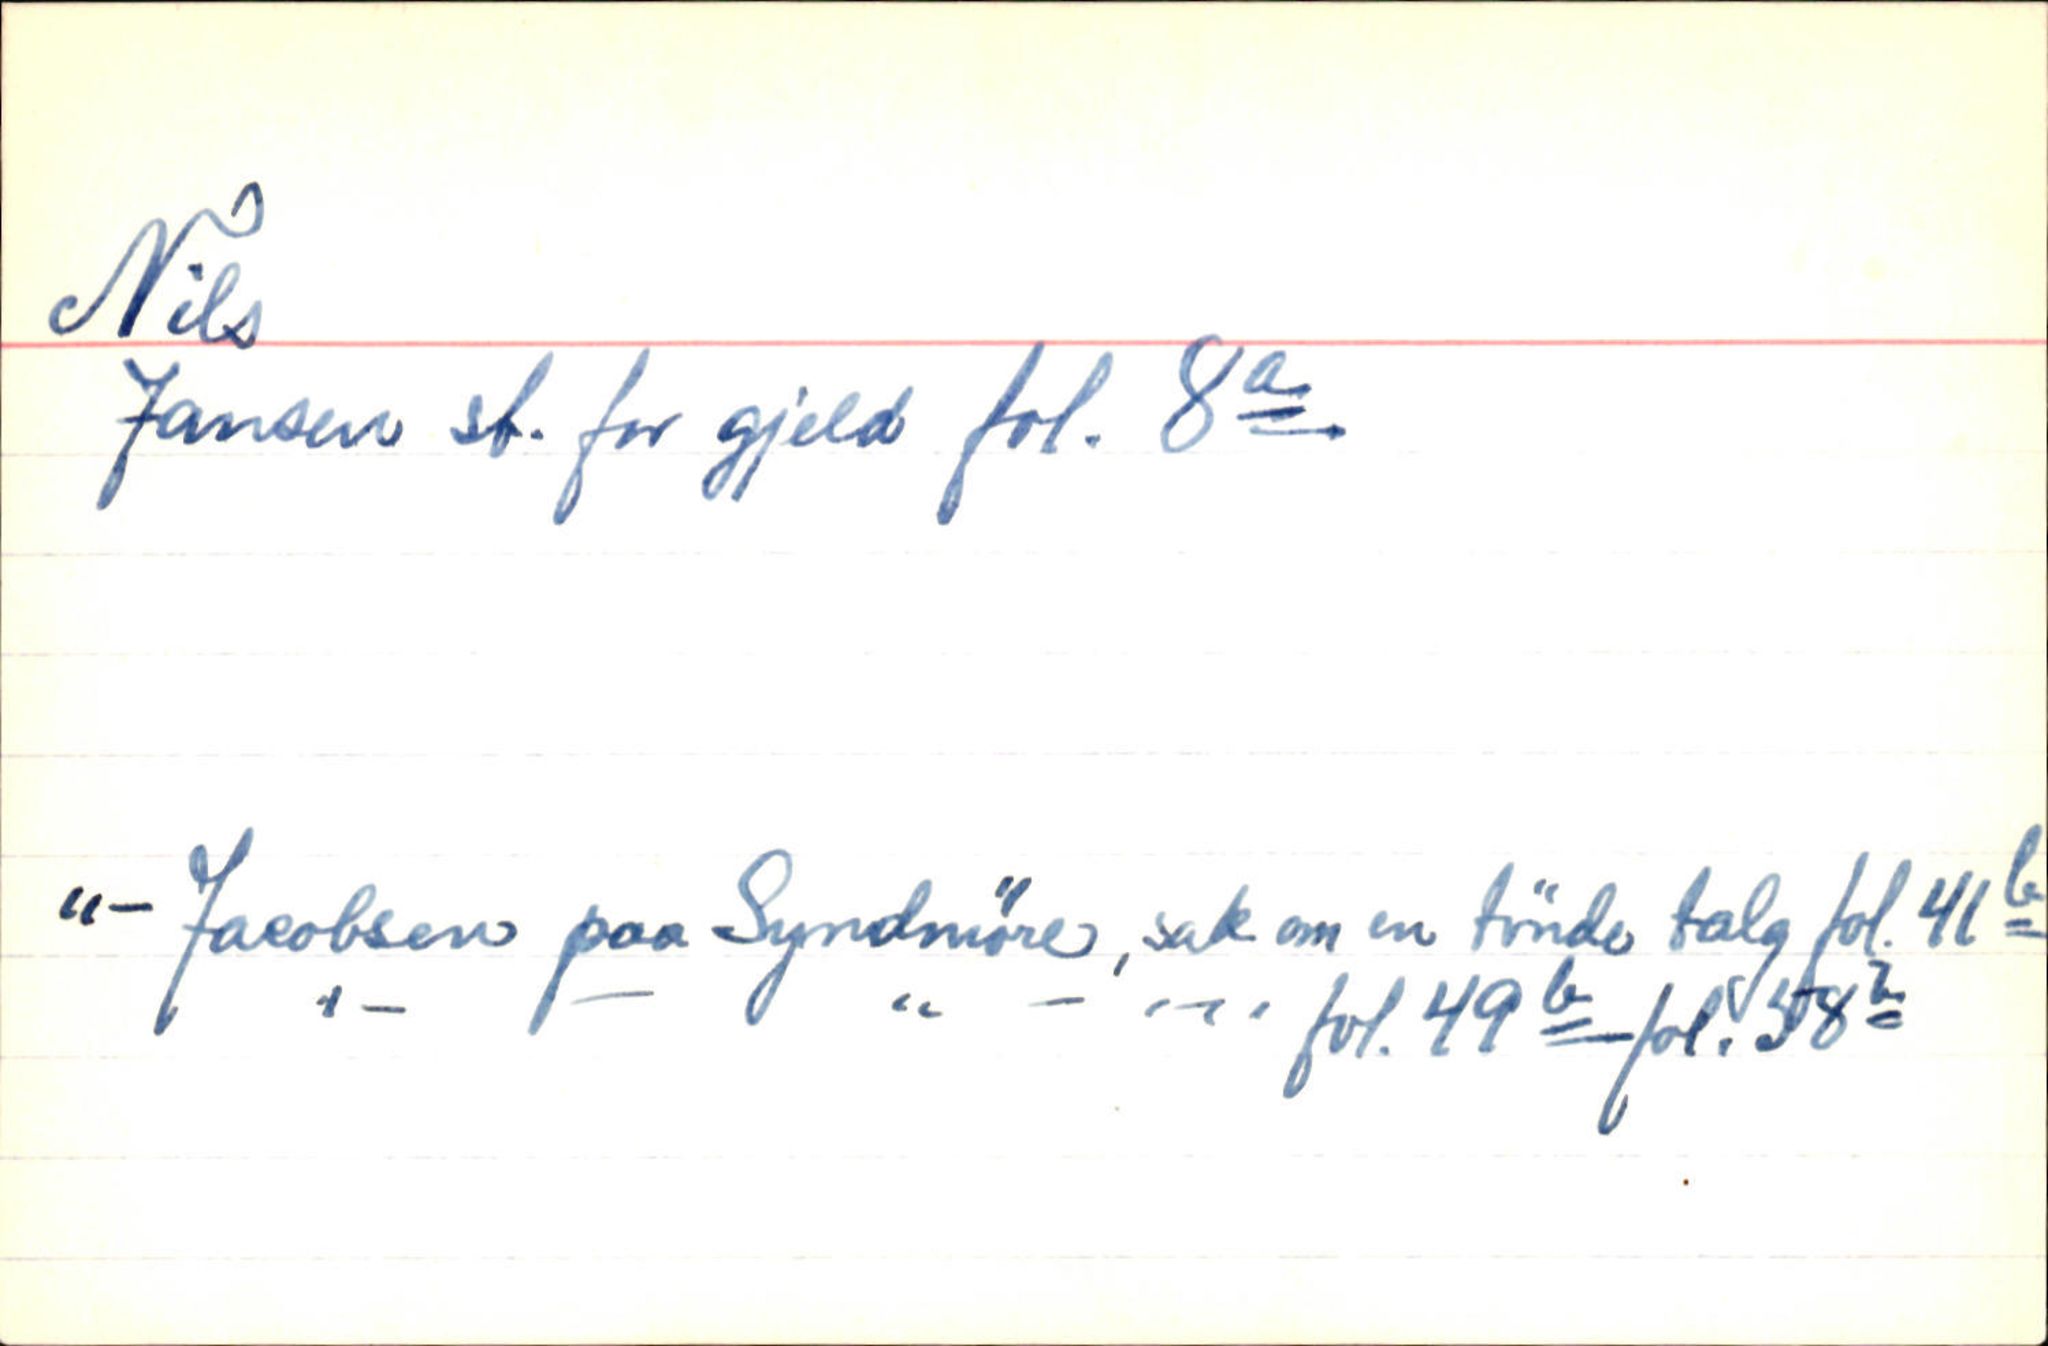 Nils
Jansen st. for gjeld fol. 8a
"- Jacobsen paa Syndmöre, sak om en tönde talg fol. 41b
"- — " — " - " fol. 49b fol. 58b